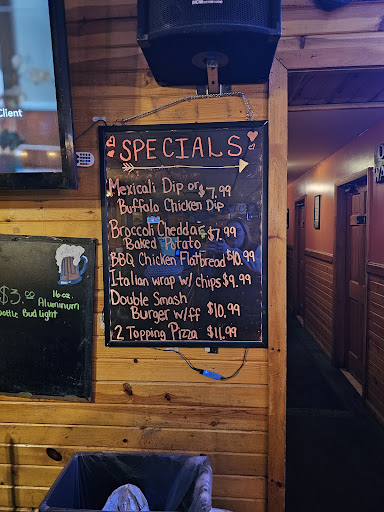 Client
SPECIALS
Mexicali Dip or $7.99
Buffalo Chicken Dip
Broccoli Cheddar $7.99
Baked Potato
BBQ Chicken Flatbread $10.99
Italian wrap w/ chips $9.99
Double Smash
Burger w/ff $10.99
2 Topping Pizza $11.99
$3.00 16 oz.
Aluminum
Bottle Bud light